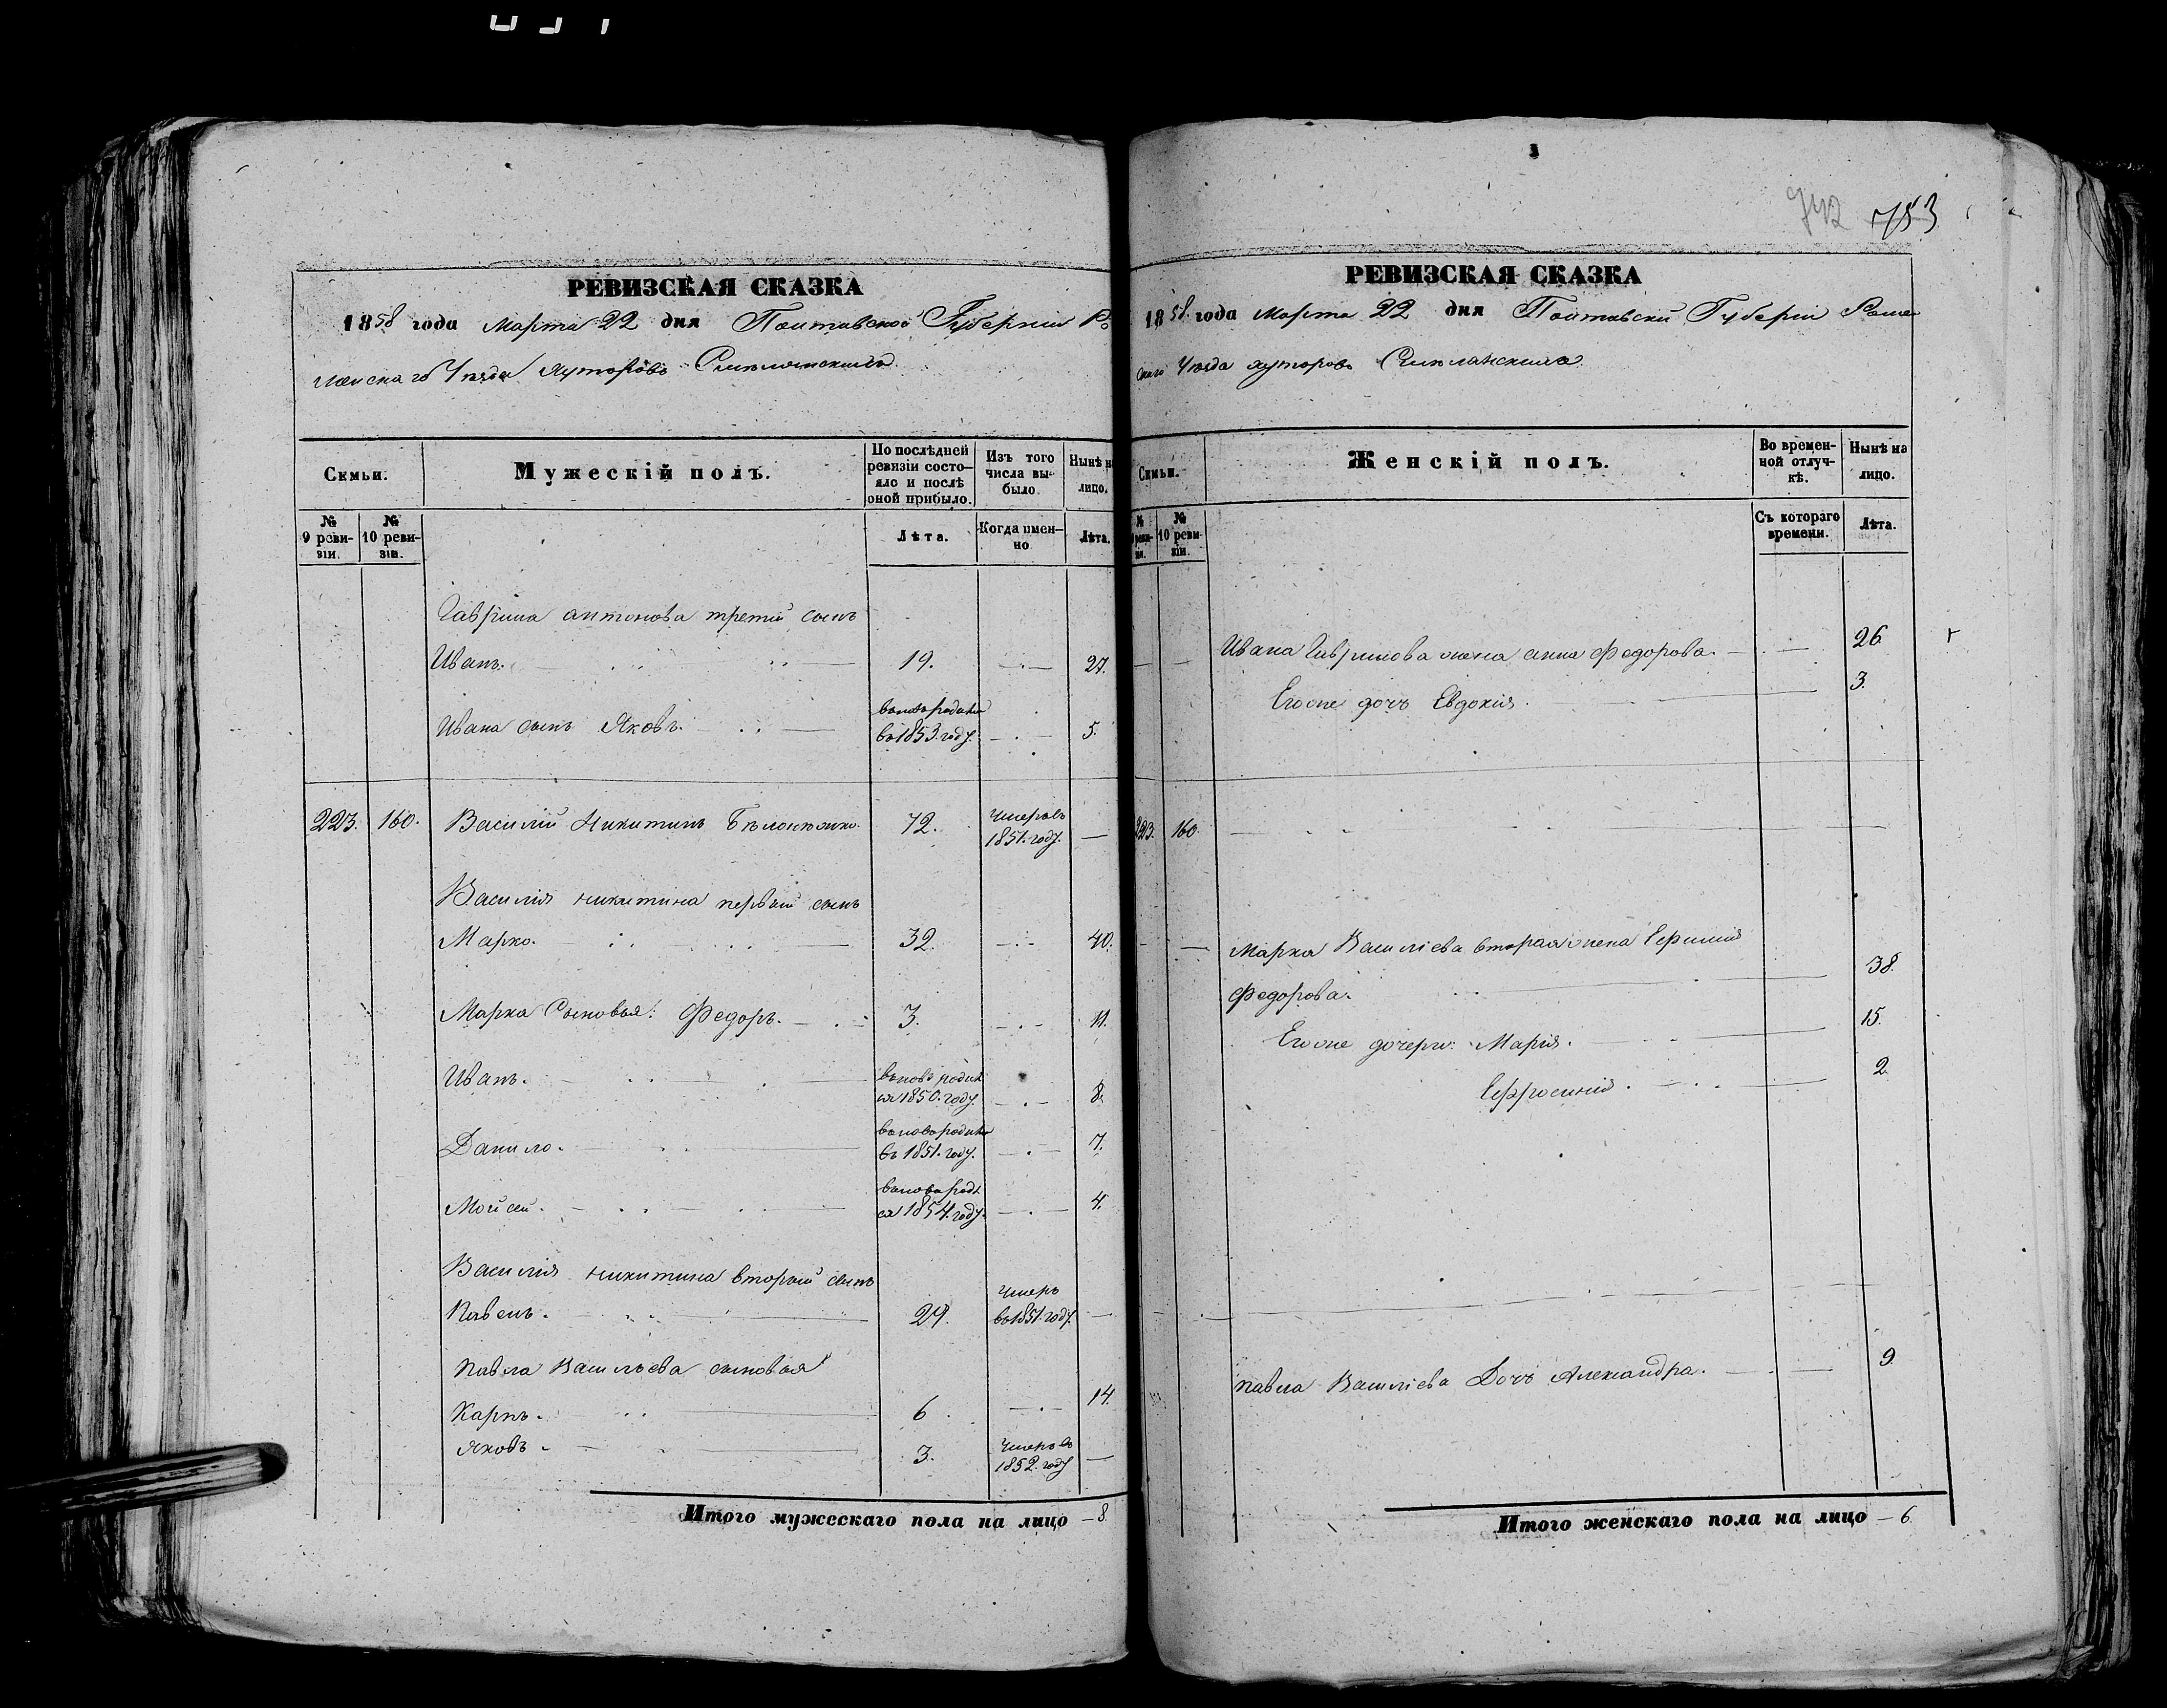 РЕВИЗСКАЯ СКАЗКА
1858 года Марта 22 дня Полтавской Губерніи Ро
менскаго Уѣзда Хуторовъ
Семьи.
Мужескій полъ.
По послѣдней ревизіи состо-
яло и послѣ оной прибыло.
Изъ того числа вы-
было.
Нынѣ на лицо.
№ 9 реви-
зіи.
№ 10 реви-
зіи.
Лѣта.
Когда имен-
но
Лѣта.
Гаврила антонова третій сынъ
Иванъ. 19. 27.
Ивана сынъ Яковъ. вновь родился въ 1853. году. 5.
223. 160. Василій Никитинъ 72. Умеръ въ 1851. году.
Василія никитина первый сынъ
Марко. 32. 40.
Марка Сыновья: Федоръ. 3. 11.
Иванъ. вновь родил
ся 1850. году. 8.
Данило. вновь родился въ 1851. году. 7.
Мойсей. вновь родил
ся 1854. году. 4.
Василія никитина вторый сынъ
Павелъ. 29. Умеръ въ 1851. году.
Павла Васильева сыновья
Карпъ. 6. 14.
Яковъ. 3. Умеръ въ 1852. году
Итого мужескаго пола на лицо — 8.
742 753
РЕВИЗСКАЯ СКАЗКА
1858. года Марта 22 дня Полтавски Губеріи Роме
скаго Уѣзда хуторовъ
Семьи.
Женскій полъ.
Во времен-
ной отлуч-
кѣ.
Нынѣ на лицо.
№ 9 реви-
зіи.
№ 10 реви-
зіи.
Съ котораго времени.
Лѣта.
Ивана Гаврилова жена анна Федорова. 26
Егоже дочь Евдокія. 3.
223. 160.
Марка Василіева вторая жена Ефимія
Федорова. 38.
Егоже дочери: Марія. 15.
Ефросинія. 2.
Павла Василіева Дочь Александра. 9.
Итого женскаго пола на лицо — 6.